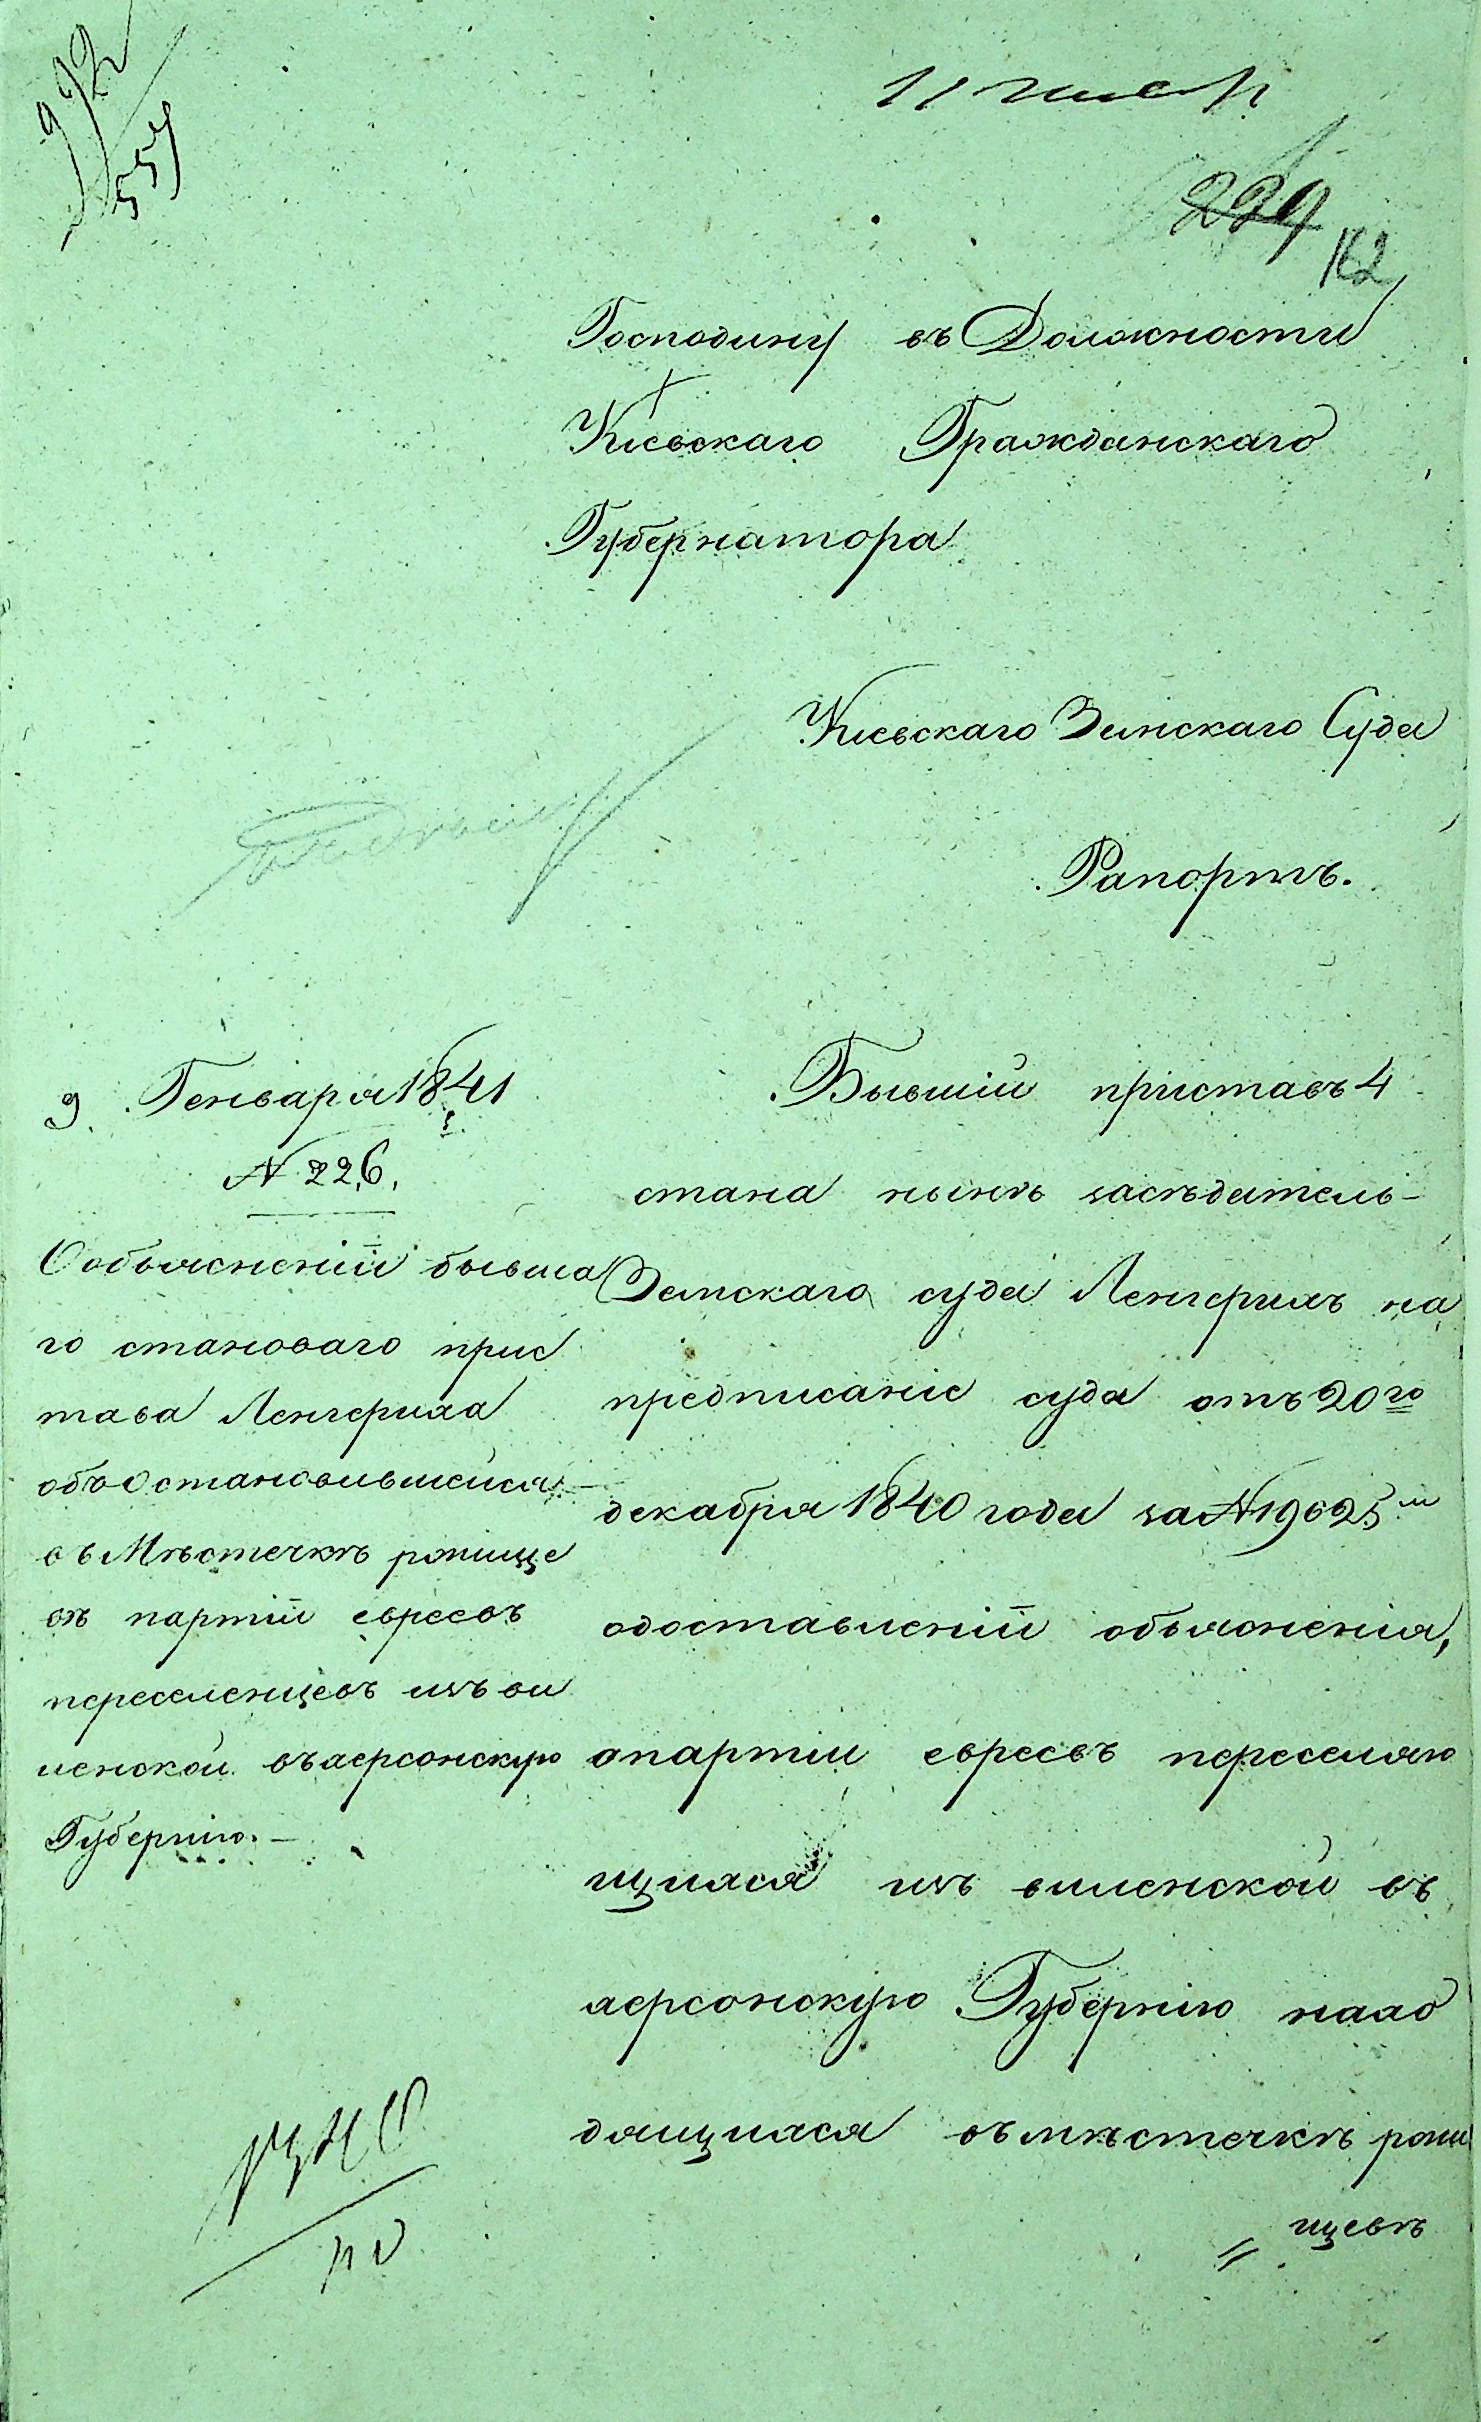 992
557
11 генв
229
162
Господину въ Должности
Кіевскаго Гражданскаго
Губернатора
Кіевскаго Земскаго Суда
Рапортъ.
9. Генваря 1841
№ 226.
Собъясненіи бывша
го становаго прис
тава Ленгериха
объ Остановившейся
въ Мѣстечкѣ ржище
вѣ партіи евреевъ
переселенцевъ изъ ви
ленской въ херсонскую
Губернію.—
Бывшій приставъ 4
стана нынѣ засѣдатель—
Земскаго суда Ленгерихъ на
предписаніе суда отъ 20го
декабря 1840 года за № 19625м
одоставленіи объясненія,
опартіи евреевъ переселяю
щихся изъ виленской въ
херсонскую Губернію нахо
дящихся въ мѣстечкѣ ржи
щевѣ